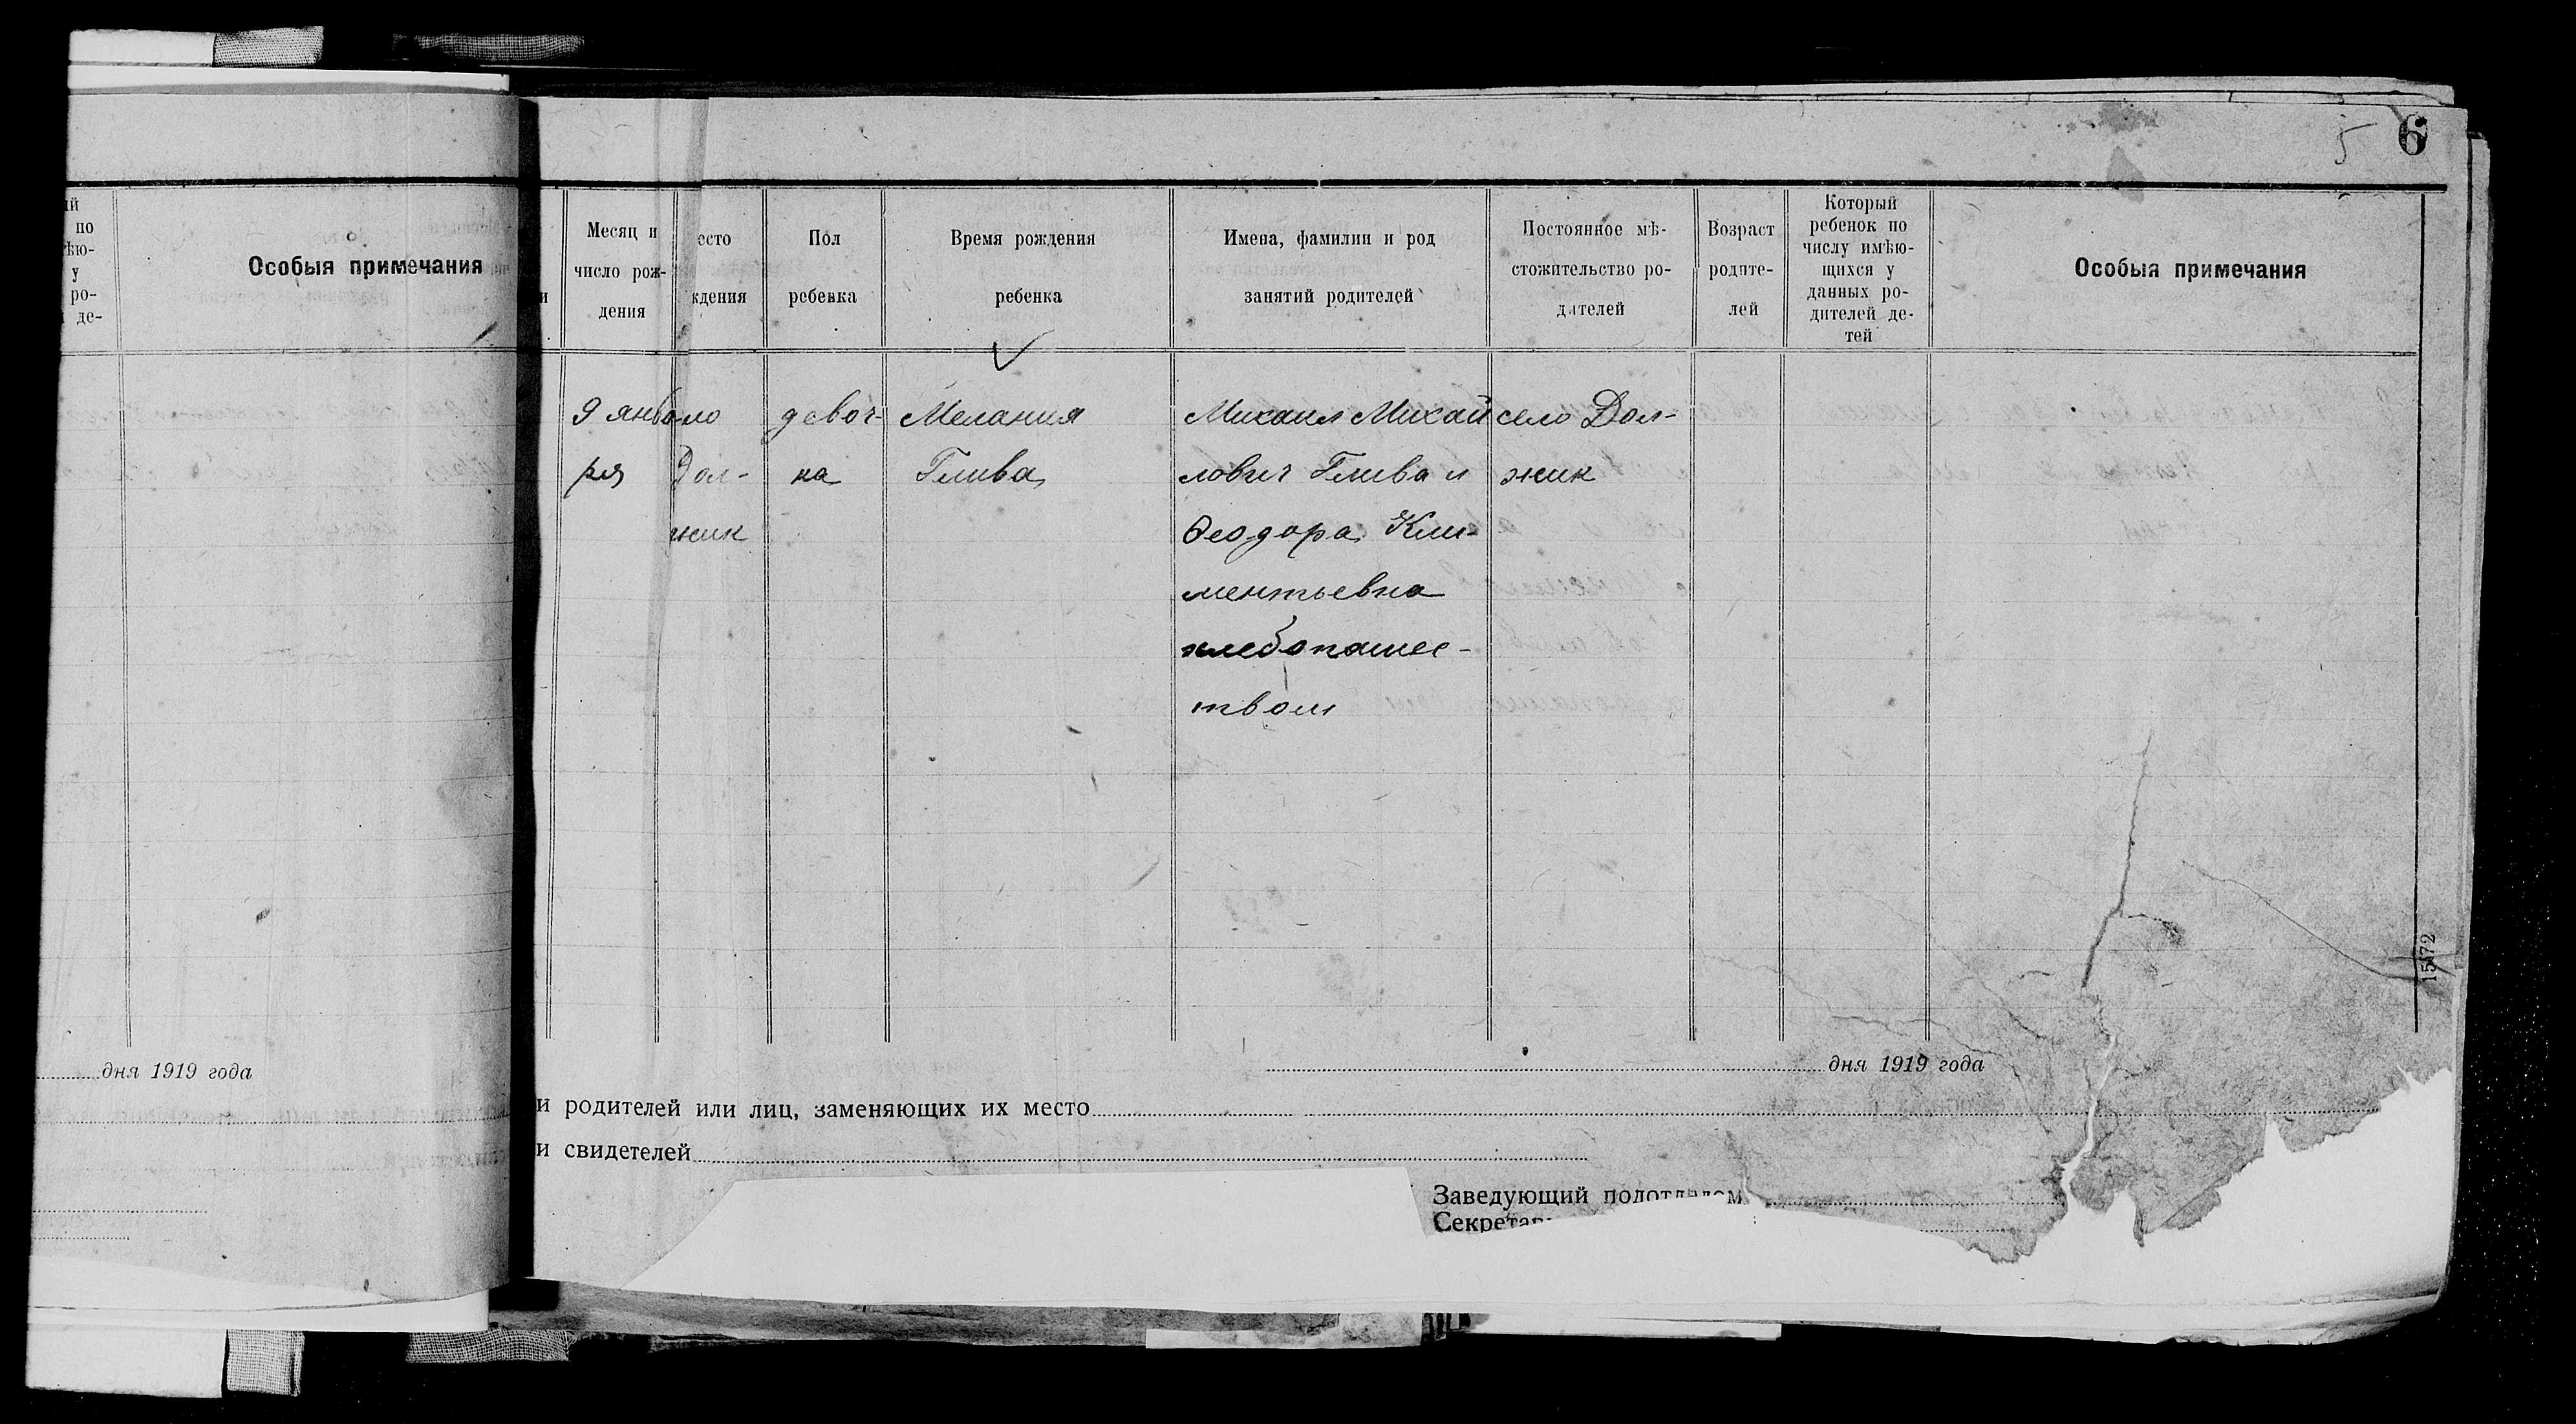 5 6
й
по
ѣю-
у
ро-
де-
Особыя примечания
и
Месяц и
число рож-
дения
есто
ждения
Пол
ребенка
Время рождения
ребенка
Имена, фамилии и род
занятий родителей
Постоянное мѣ-
стожительство ро-
дителей
Возраст
родите-
лей
Который
ребенок по
числу имѣю-
щихся у
данных ро-
дителей де-
тей
Особыя примечания
9 янва
ря
ло
Дол-
жик
девоч-
ка
Мелания
Глива
Михаил Михай
лович Глива и
Феодора Кли-
ментьевна
хлебопашес-
твом
село Дол-
жик
1572
дня 1919 года
дня 1919 года
и родителей или лиц, заменяющих их место
и свидетелей
Заведующий подотделом
Секретарь